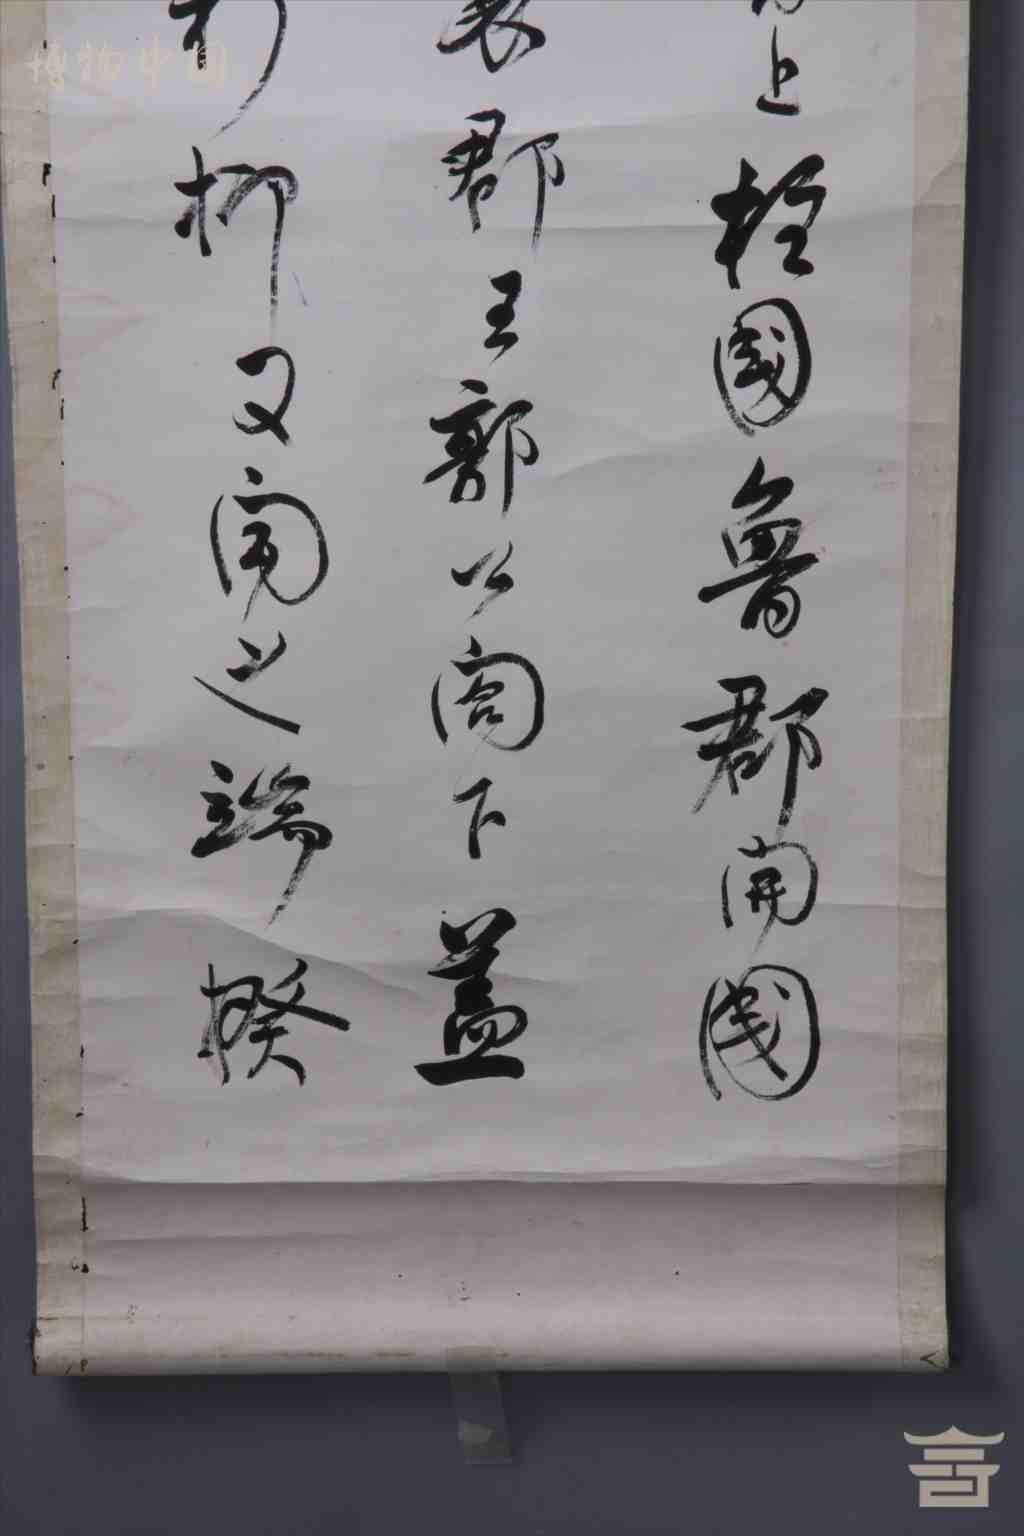 上柱國魯郡開國
襄郡王郭公閤下蓋
抑又聞之端揆
博物中国